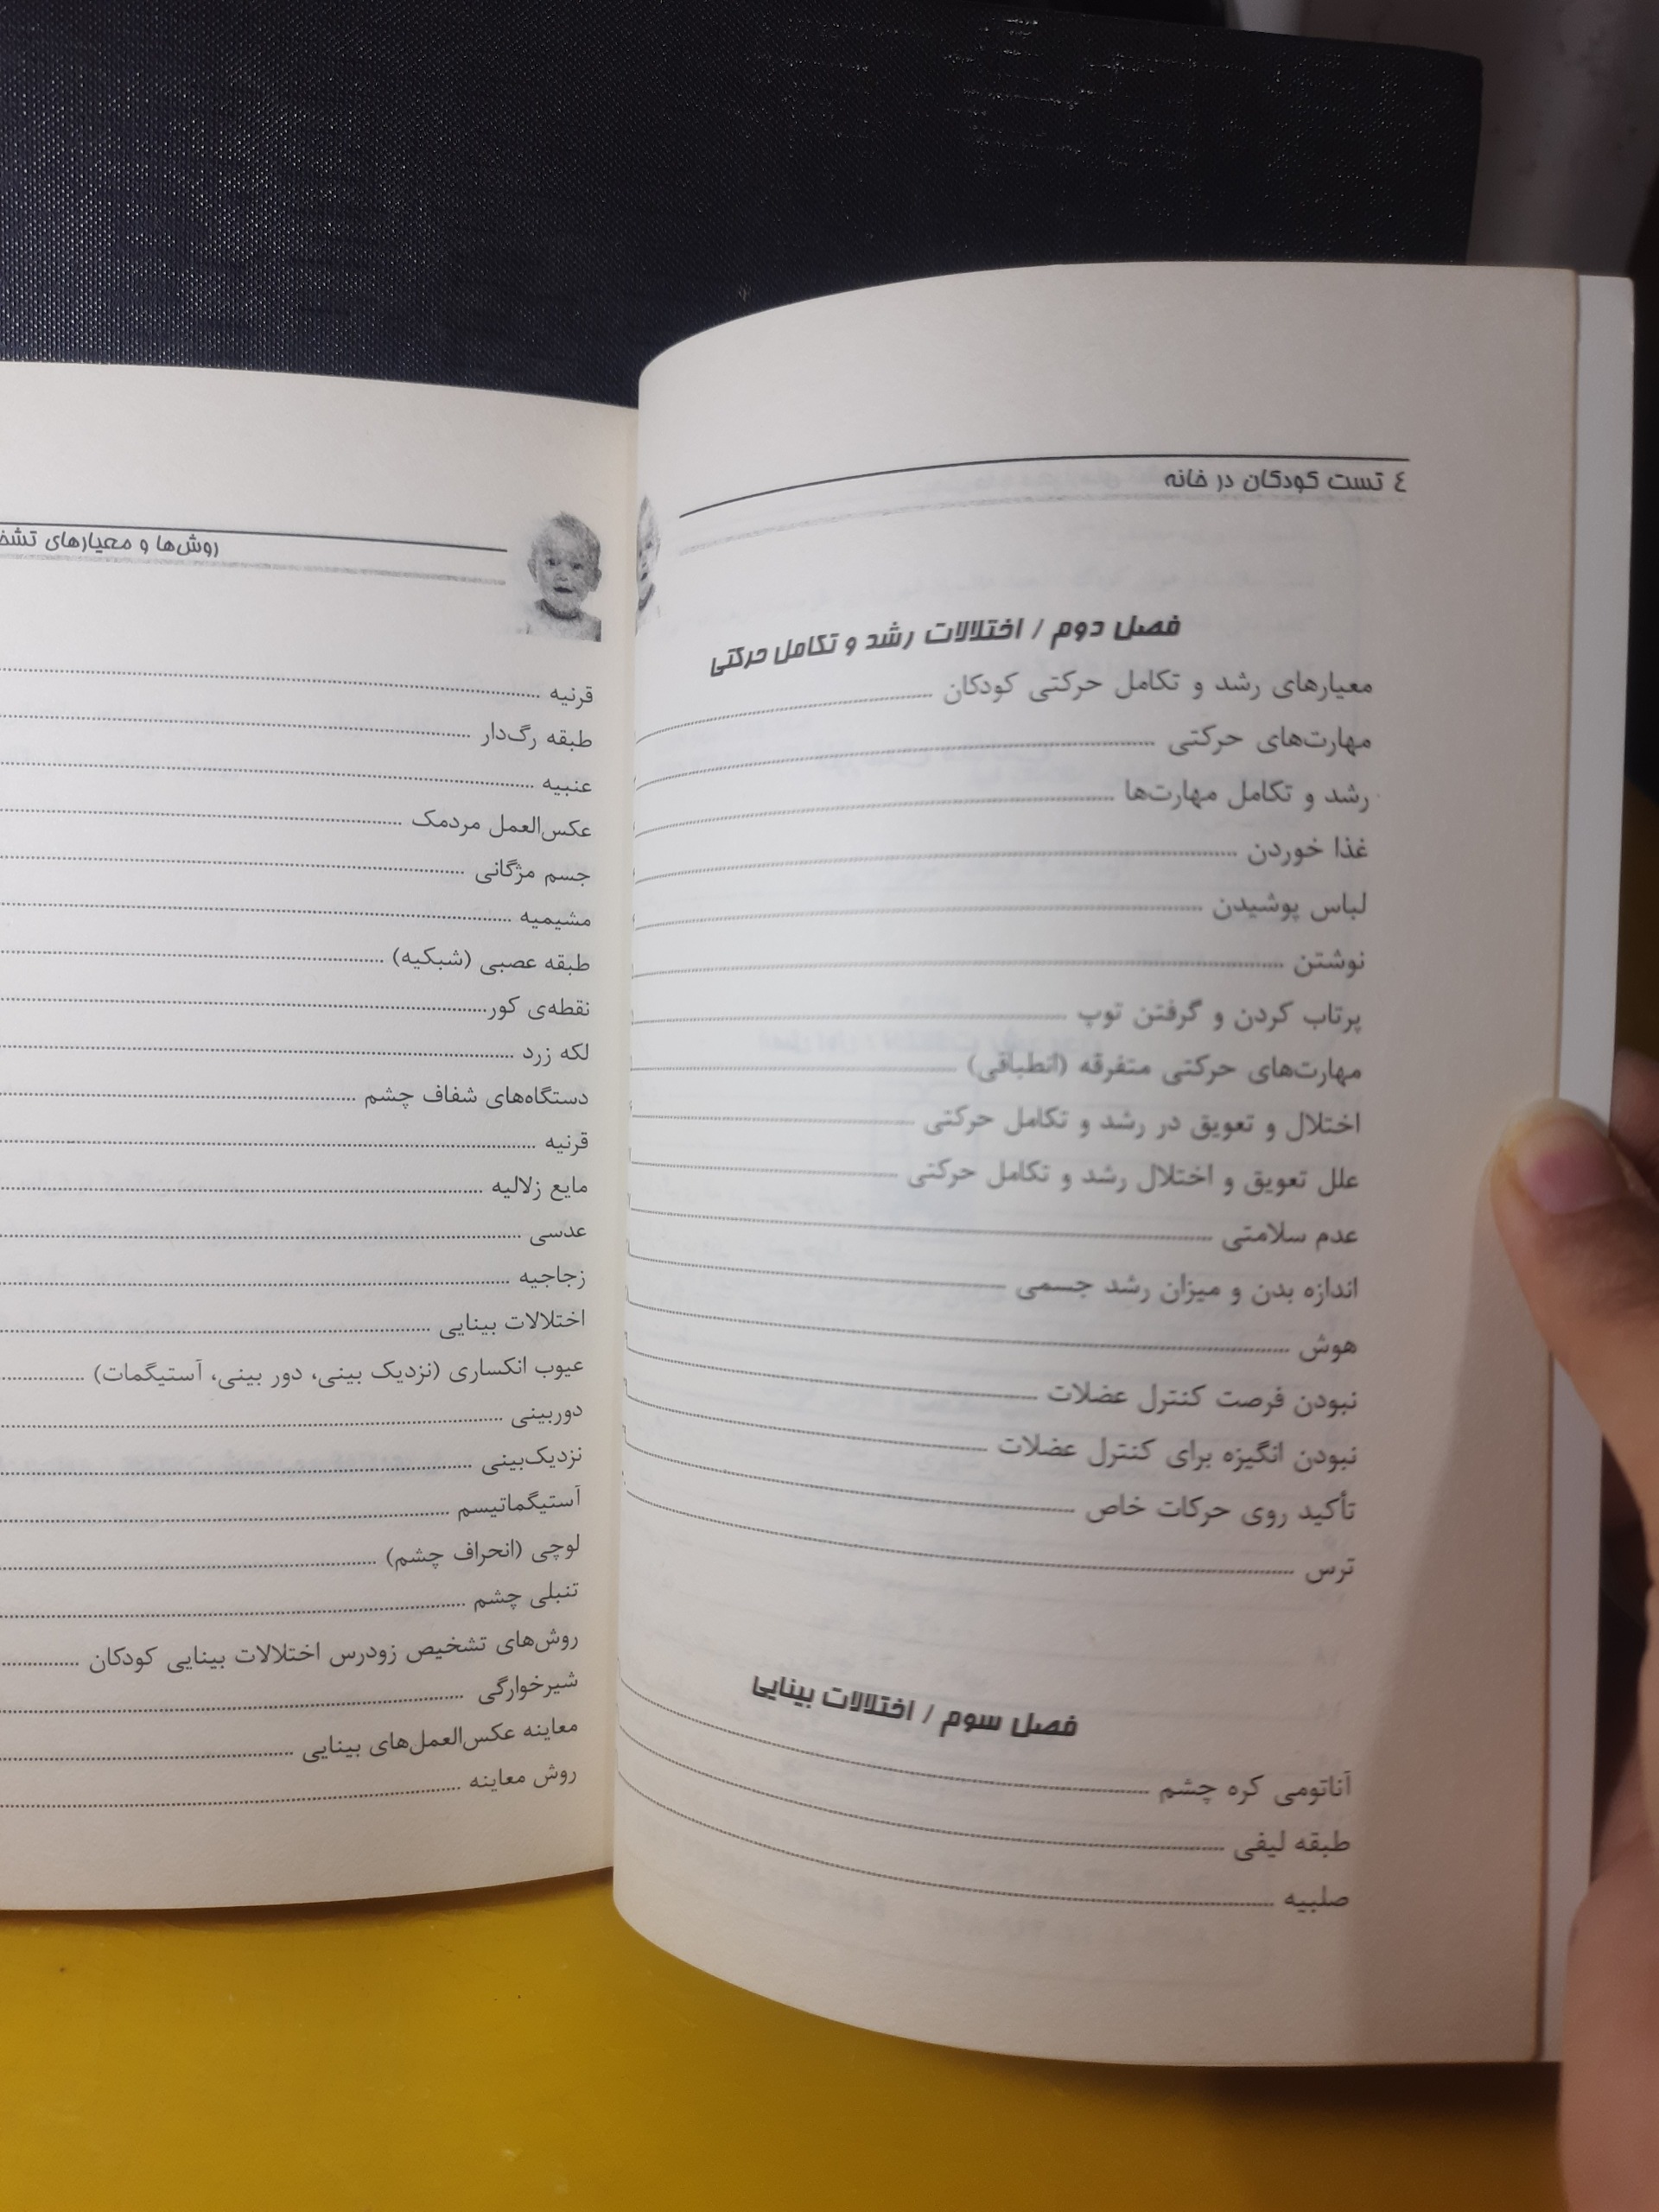 ٤ تست کودکان در خانه
فصل دوم / اختلالات رشد و تکامل حرکتی
معیارهای رشد و تکامل حرکتی کودکان
مهارت‌های حرکتی
رشد و تکامل مهارت‌ها
غذا خوردن
لباس پوشیدن
نوشتن
پرتاب کردن و گرفتن توپ
مهارت‌های حرکتی متفرقه (انطباقی)
اختلال و تعویق در رشد و تکامل حرکتی
علل تعویق و اختلال رشد و تکامل حرکتی
عدم سلامتی
اندازه بدن و میزان رشد جسمی
هوش
نبودن فرصت کنترل عضلات
نبودن انگیزه برای کنترل عضلات
تأکید روی حرکات خاص
ترس
فصل سوم / اختلالات بینایی
آناتومی کره چشم
طبقه لیفی
صلبیه
روش‌ها و معیارهای
قرنیه
طبقه رگ‌دار
عنبیه
عکس‌العمل مردمک
جسم مژگانی
مشیمیه
طبقه عصبی (شبکیه)
نقطه‌ی کور
لکه زرد
دستگاه‌های شفاف چشم
قرنیه
مایع زلالیه
عدسی
زجاجیه
اختلالات بینایی
عیوب انکساری (نزدیک بینی، دور بینی، آستیگمات)
دوربینی
نزدیک‌بینی
آستیگماتیسم
لوچی (انحراف چشم)
تنبلی چشم
روش‌های تشخیص زودرس اختلالات بینایی کودکان
شیرخوارگی
معاینه عکس‌العمل‌های بینایی
روش معاینه